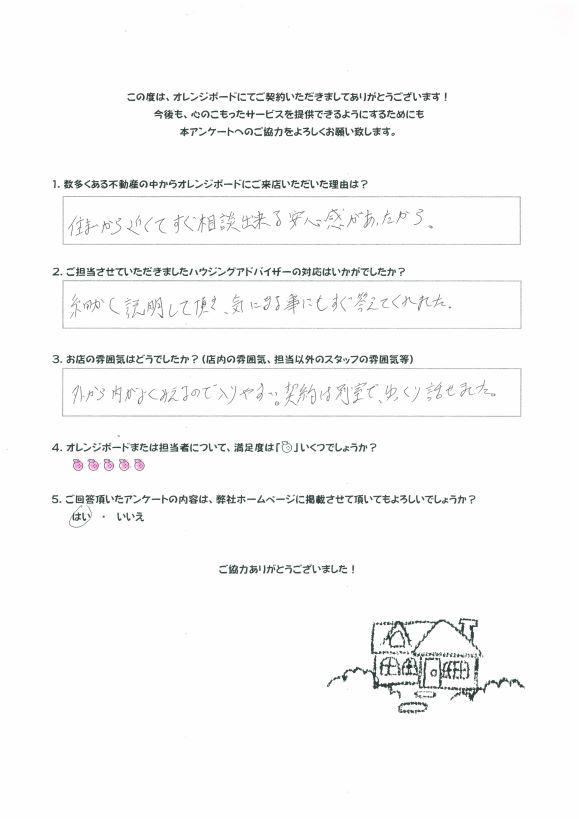 この度は、オレンジボードにてご契約いただきましてありがとうございます！
今後も、心のこもったサービスを提供できるようにするためにも
本アンケートへのご協力をよろしくお願い致します。
1. 数多くある不動産の中からオレンジボードにご来店いただいた理由は？
住まいから近くてすぐ相談出来る安心感があったから。
2. ご担当させていただきましたハウジングアドバイザーの対応はいかがでしたか？
細かく説明して頂き、気になる事にもすぐ答えてくれました。
3. お店の雰囲気はどうでしたか？（店内の雰囲気、担当以外のスタッフの雰囲気等）
外から内がよくみえるので入りやすい。契約は別室で、ゆっくり話せました。
4. オレンジボードまたは担当者について、満足度は「」いくつでしょうか？
5. ご回答頂いたアンケートの内容は、弊社ホームページに掲載させて頂いてもよろしいでしょうか？
はい ・ いいえ
ご協力ありがとうございました！